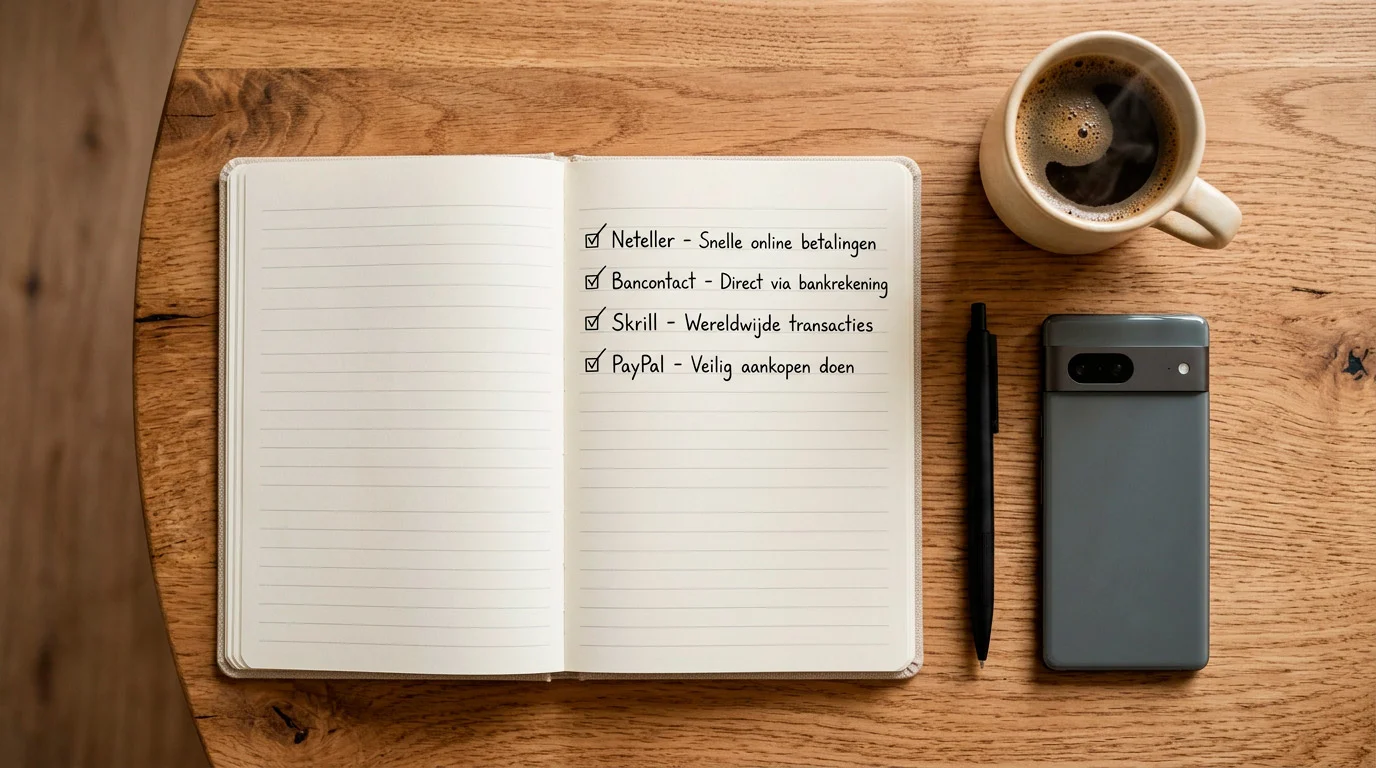 ☑ Neteller - Snelle online betalingen
☑ Bancontact - Direct via bankrekening
☑ Skrill - Wereldwijde transacties
☑ PayPal - Veilig aankopen doen